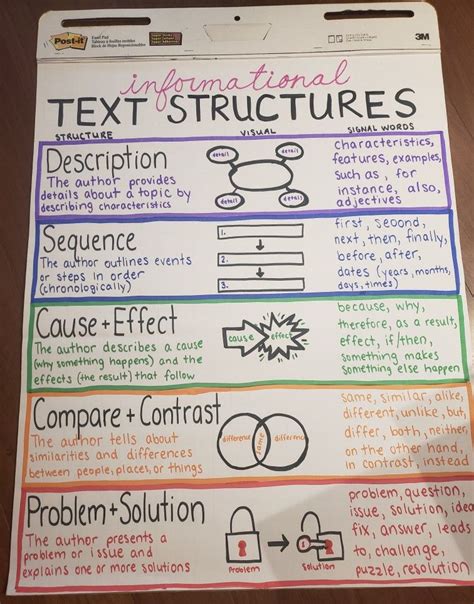 Post-it
Easel Pad
Super Sticky
3M
informational
TEXT STRUCTURES
STRUCTURE VISUAL SIGNAL WORDS
Description
The author provides
details about a topic by
describing characteristics
detail detail
detail detail
characteristics,
features, examples,
such as, for
instance, also,
adjectives
Sequence
The author outlines events
or steps in order
(chronologically)
1.
2.
3.
first, second,
next, then, finally,
before, after,
dates (years, months,
days, times)
Cause + Effect
The author describes a cause
(why something happens) and the
effects (the result) that follow
cause effect
because, why,
therefore, as a result,
effect, if/then,
something makes
something else happen
Compare + Contrast
The author tells about
similarities and differences
between people, places, or things
difference same difference
same, similar, alike,
different, unlike, but,
differ, both, neither,
on the other hand,
in contrast, instead
Problem + Solution
The author presents a
problem or issue and
explains one or more solutions
Problem Solution
problem, question,
issue, solution, idea
fix, answer, leads
to, challenge,
puzzle, resolution